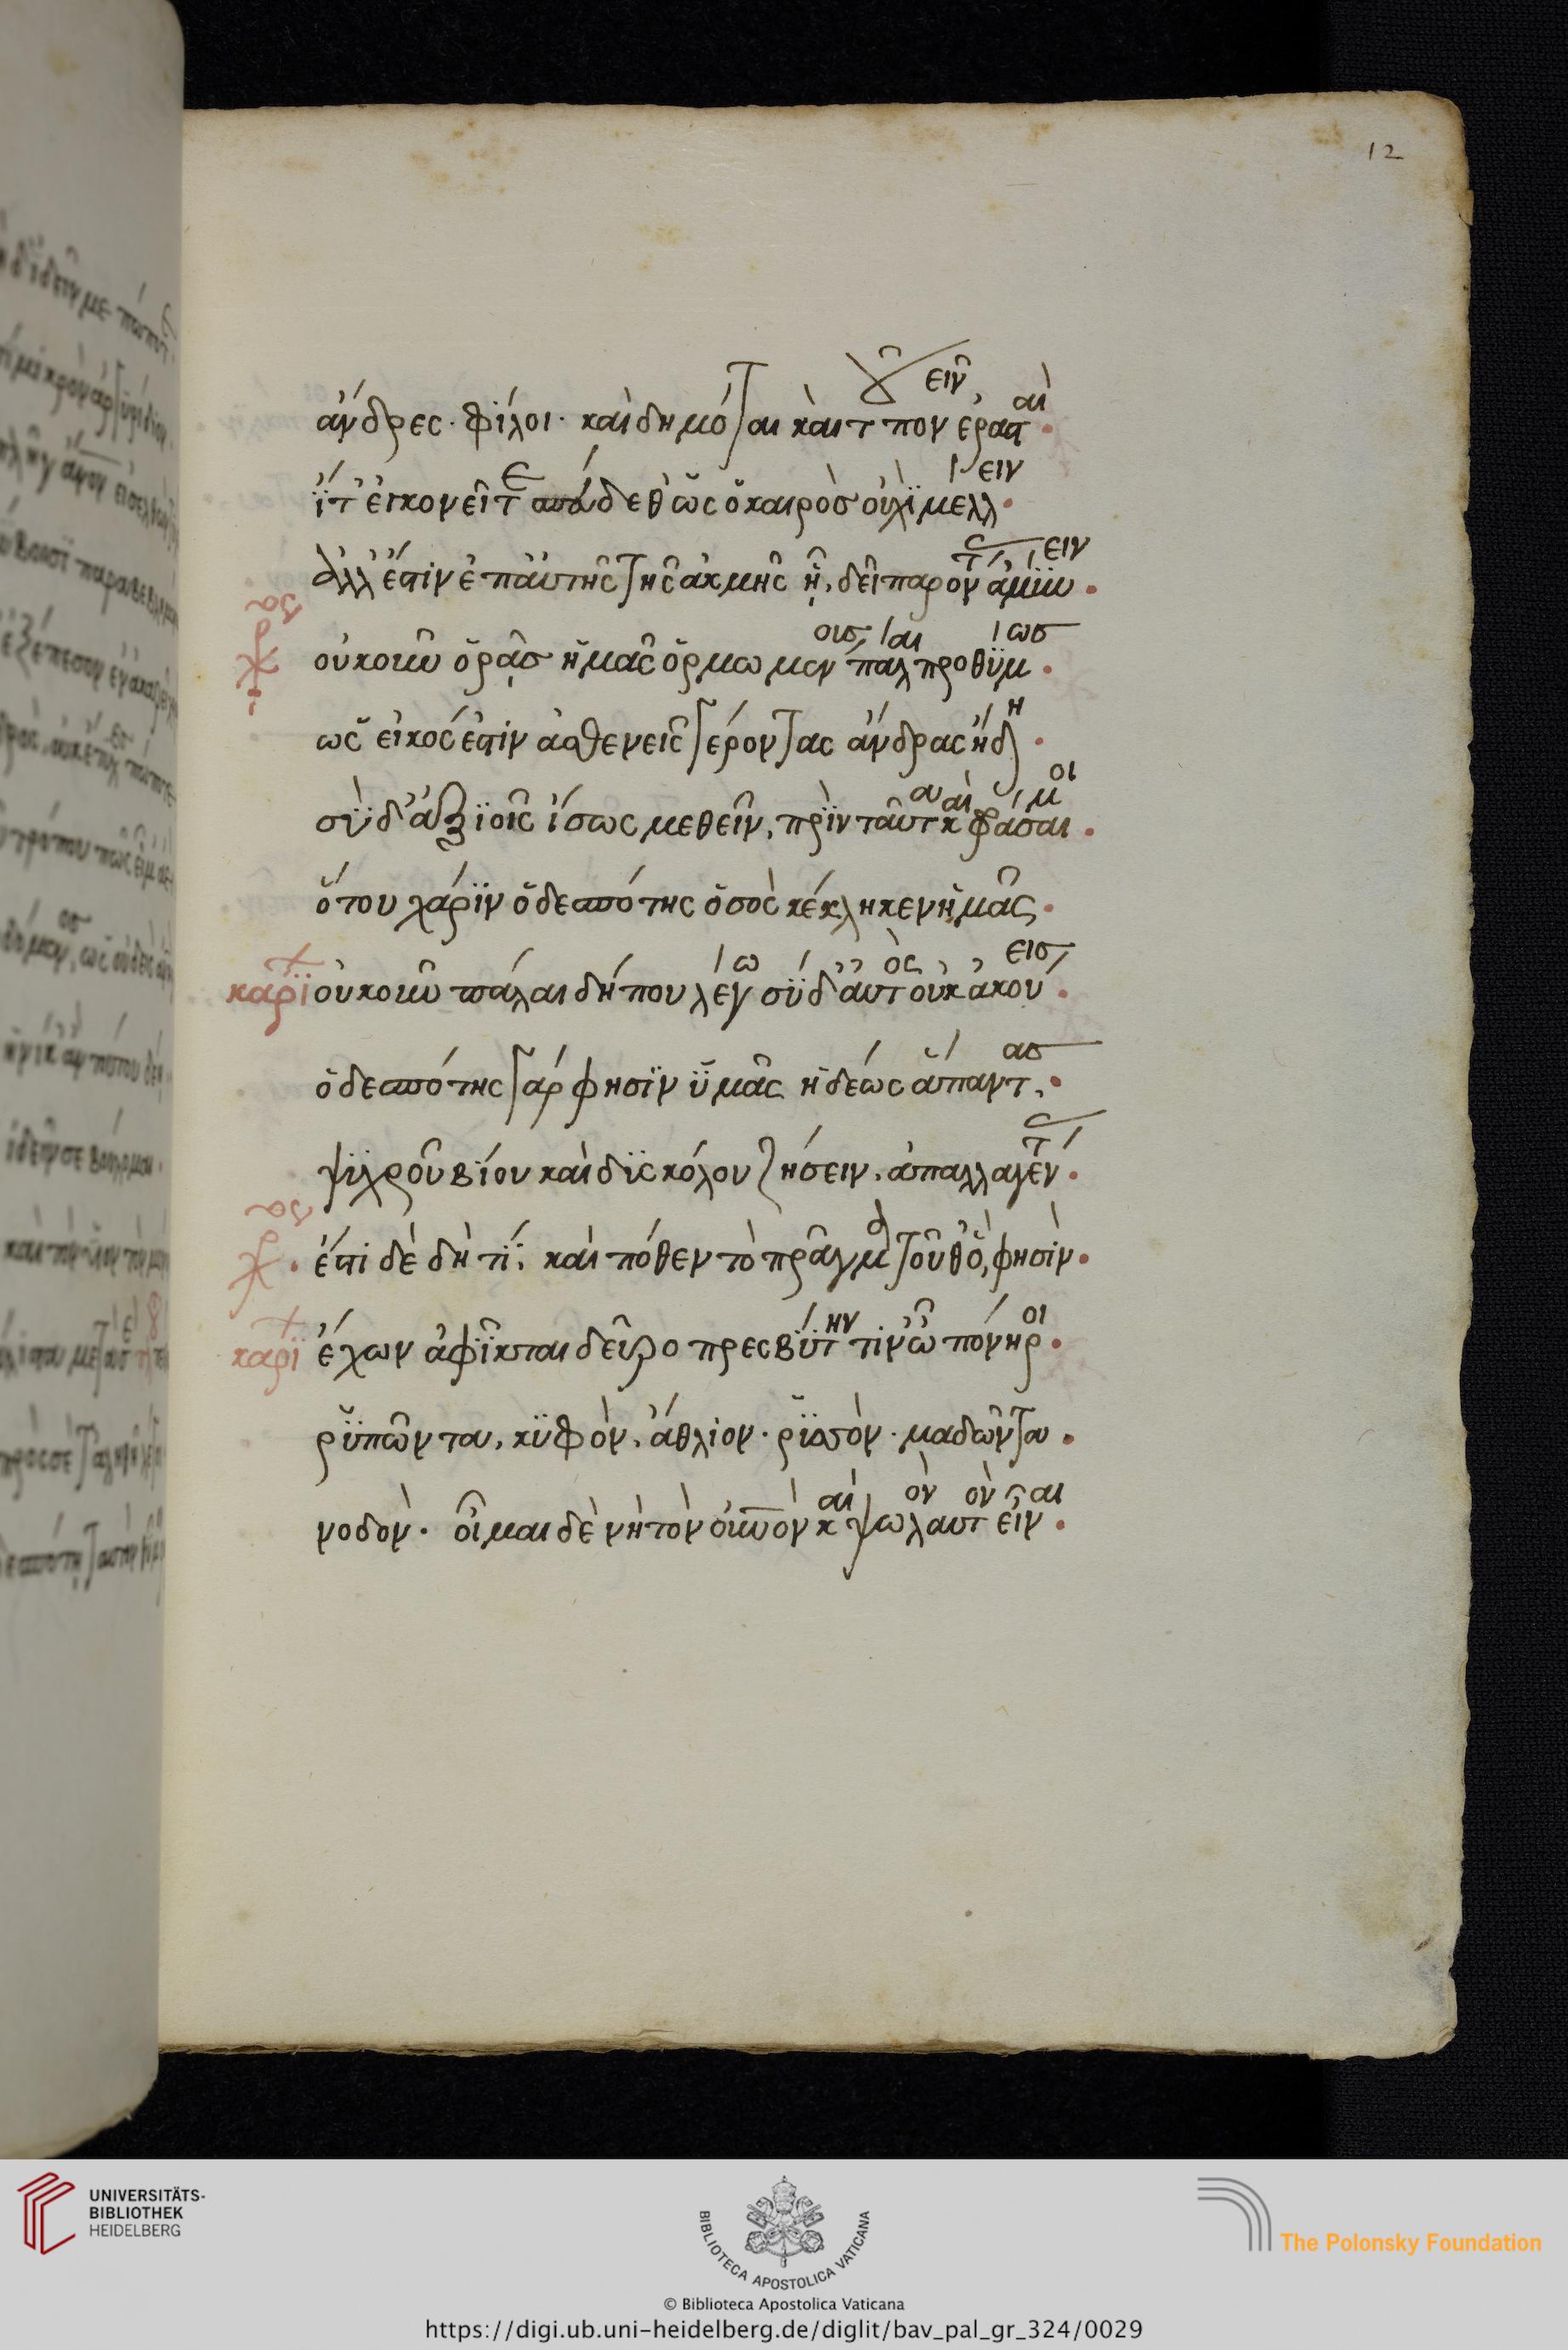 12
ἄνδρες· φίλοι· καὶ δημόται καὶ τοῦ πονεῖν ἐρασταὶ·
ἴτ' ἐγκονεῖτε σπεύδεθ' ὡς ὁ καιρὸς οὐχὶ μέλλειν·
ἀλλ' ἔστιν ἐπ' αὐτῆς τῆς ἀκμῆς ᾗ, δεῖ παρόντ' ἀμύνειν·
οὐκοῦν ὁρᾷς ἡμᾶς ὁρμωμένους πάλαι προθύμως·
ὡς εἰκός ἐστιν ἀσθενεῖς γέροντας ἄνδρας ἤδη·
σὺ δ' ἀξιοῖς ἴσως με θεῖν, πρὶν ταῦτα καὶ φράσαι μοι·
ὅτου χάριν ὁ δεσπότης ὁ σὸς κέκληκεν ἡμᾶς·
καρί οὐκοῦν πάλαι δήπου λέγω σὺ δ' αὐτὸς οὐκ ἀκούεις·
ὁ δεσπότης γάρ φησιν ὑμᾶς ἡδέως ἅπαντας·
ψυχροῦ βίου καὶ δυσκόλου ζήσειν, ἀπαλλαγέντας·
ἔστι δὲ δὴ τί; καὶ πόθεν τὸ πρᾶγμα τοῦθ' ὅ, φησὶν·
καρί ἔχων ἀφῖκται δεῦρο πρεσβύτην τιν' ὦ πόνηροι·
ῥυπῶντα, κυφὸν, ἄθλιον· ῥυσὸν· μαδῶντα·
νοδὸν· οἶμαι δὲ νὴ τὸν οὐρανὸν καὶ ψωλὸν αὐτὸν εἶναι·
UNIVERSITÄTS-
BIBLIOTHEK
HEIDELBERG
BIBLIOTECA APOSTOLICA VATICANA
The Polonsky Foundation
© Biblioteca Apostolica Vaticana
https://digi.ub.uni-heidelberg.de/diglit/bav_pal_gr_324/0029